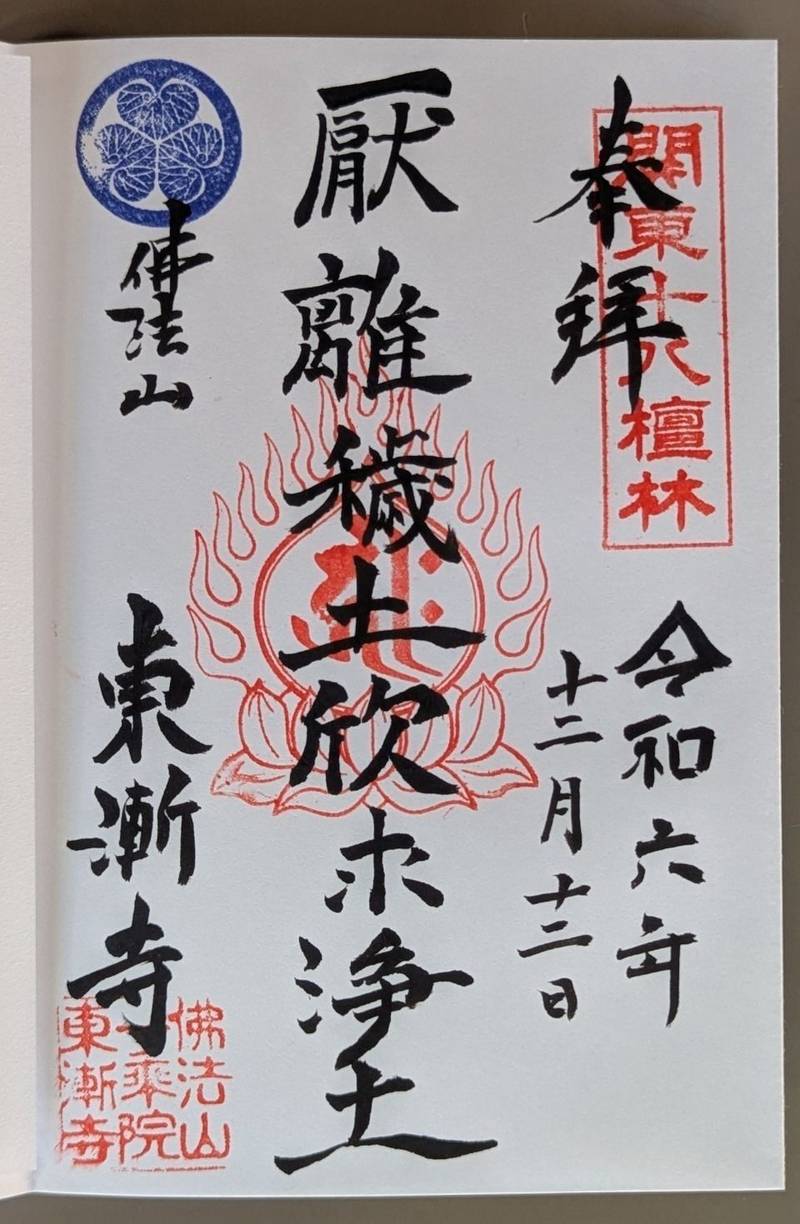 関東十八檀林
奉拝
令和六年
十二月十三日
厭離穢土欣求浄土
佛法山
東漸寺
佛法山
一乘院
東漸寺